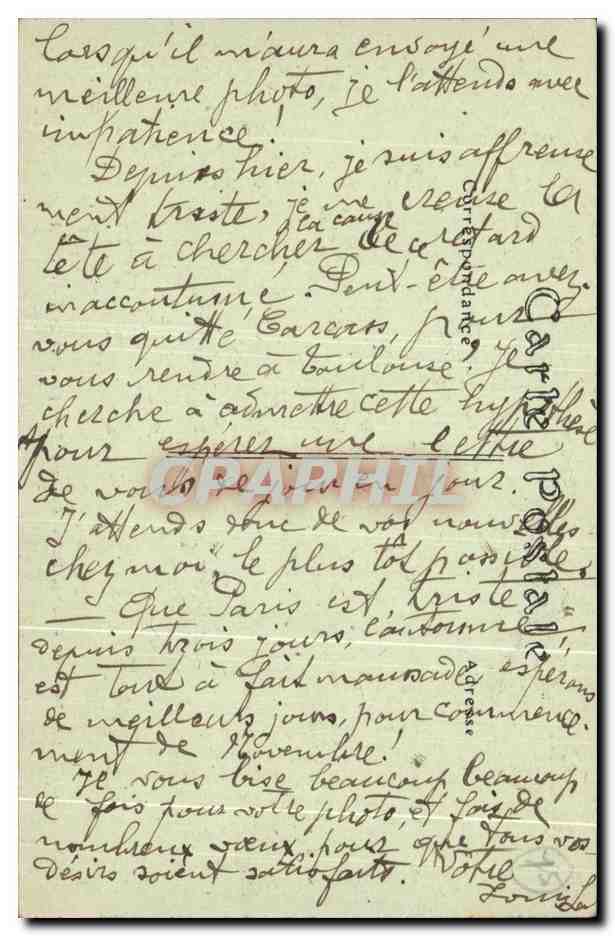 lorsqu'il m'aura envoyé une
meilleure photo, je l'attends avec
impatience!
Depuis hier, je suis affreuse
ment triste, je me creuse la
tête à chercher la cause de ce retard
inaccoutumé. Peut-être avez-
vous quitté Carcass, pour
vous rendre à Toulouse? Je
cherche à admettre cette hypothèse
pour espérer une lettre
de vous de jour en jour.
J'attends donc de vos nouvelles
chez moi, le plus tôt possible.
— Que Paris est triste
depuis trois jours, l'automne
est tout à fait maussade, espérons
de meilleurs jours, pour commence-
ment de Novembre!
Je vous bise beaucoup beaucoup
de fois pour votre photo, et fais de
nombreux vœux pour que tous vos
désirs soient satisfaits. Vôtre
Carte postale
Correspondance
Adresse
CPAPHIL
45